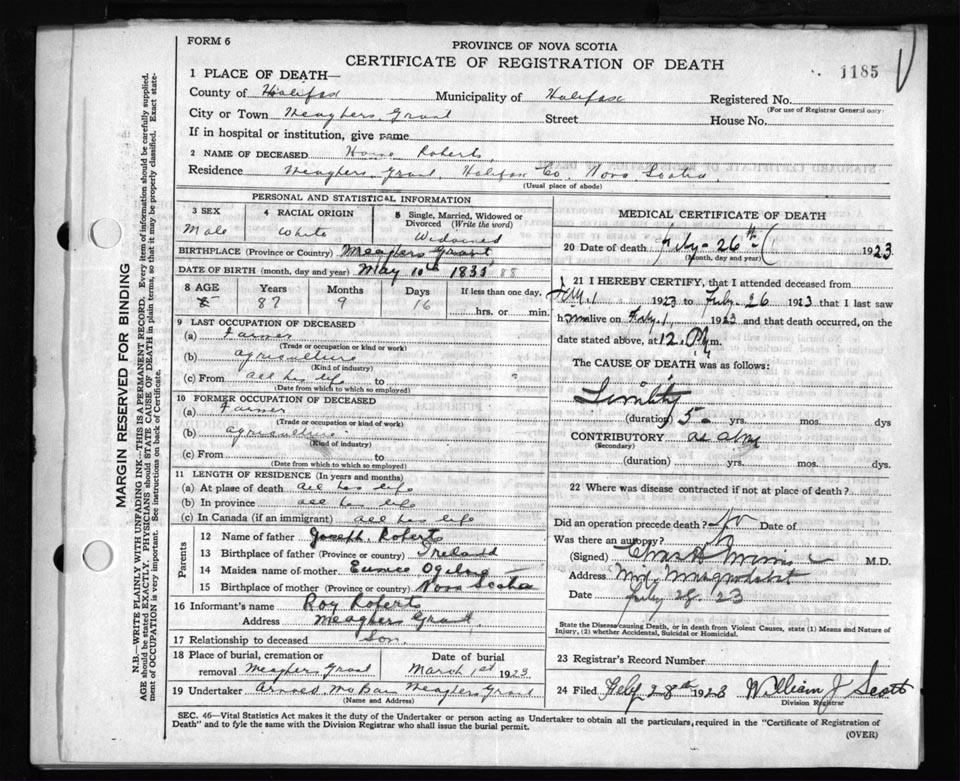 FORM 6
PROVINCE OF NOVA SCOTIA
CERTIFICATE OF REGISTRATION OF DEATH
1185
1 PLACE OF DEATH—
County of Halifax Municipality of Halifax Registered No.
(For use of Registrar General only)
City or Town Meaghers Grant Street House No.
If in hospital or institution, give name
2 NAME OF DECEASED Roberts
Residence Meaghers Grant, Halifax Co. Nova Scotia
(Usual place of abode)
PERSONAL AND STATISTICAL INFORMATION
3 SEX 4 RACIAL ORIGIN 5 Single, Married, Widowed or Divorced (Write the word)
Male White Widowed
BIRTHPLACE (Province or Country) Meaghers Grant
DATE OF BIRTH (month, day and year) May 10th 1835
8 AGE Years Months Days If less than one day,
87 9 16 hrs. or min.
9 LAST OCCUPATION OF DECEASED
(a) Farmer
(Trade or occupation or kind or work)
(b) agriculture
(Kind of industry)
(c) From all his life to
(Date from which to which so employed)
10 FORMER OCCUPATION OF DECEASED
(a) Farmer
(Trade or occupation or kind of work)
(b) agriculture
(Kind of industry)
(c) From to
(Date from which to which so employed)
11 LENGTH OF RESIDENCE (In years and months)
(a) At place of death all his life
(b) In province all his life
(c) In Canada (if an immigrant) all his life
Parents
12 Name of father Joseph Roberts
13 Birthplace of father (Province or country) Ireland
14 Maiden name of mother Eunice Ogilvie
15 Birthplace of mother (Province or country) Nova Scotia
16 Informant's name Roy Roberts
Address Meaghers Grant
17 Relationship to deceased Son
18 Place of burial, cremation or removal Meaghers Grant Date of burial March 1st 1923
19 Undertaker Meaghers Grant
(Name and Address)
MEDICAL CERTIFICATE OF DEATH
20 Date of death 26th 1923
(Month, day and year)
21 I HEREBY CERTIFY, that I attended deceased from
1 1923 to Feby. 26 1923 that I last saw
him alive on Feby. 1 1923 and that death occurred, on the
date stated above, at 12. P.m.
The CAUSE OF DEATH was as follows:
Senility
(duration) 5 yrs. mos. dys
CONTRIBUTORY as above
(Secondary)
(duration) yrs. mos. dys.
22 Where was disease contracted if not at place of death?
Did an operation precede death? No Date of
Was there an autopsy?
(Signed) M.D.
Address
Date 28. 23
State the Disease causing Death, or in death from Violent Causes, state (1) Means and Nature of
Injury, (2) whether Accidental, Suicidal or Homicidal.
23 Registrar's Record Number
24 Filed Feby 28th 1923 William J Scott
Division Registrar
SEC. 46—Vital Statistics Act makes it the duty of the Undertaker or person acting as Undertaker to obtain all the particulars, required in the "Certificate of Registration of
Death" and to fyle the same with the Division Registrar who shall issue the burial permit.
(OVER)
MARGIN RESERVED FOR BINDING
N.B.—WRITE PLAINLY WITH UNFADING INK—THIS IS A PERMANENT RECORD. Every item of information should be carefully supplied.
AGE should be stated EXACTLY. PHYSICIANS should STATE CAUSE OF DEATH in plain terms, so that it may be properly classified. Exact state-
ment of OCCUPATION is very important. See instructions on back of Certificate.